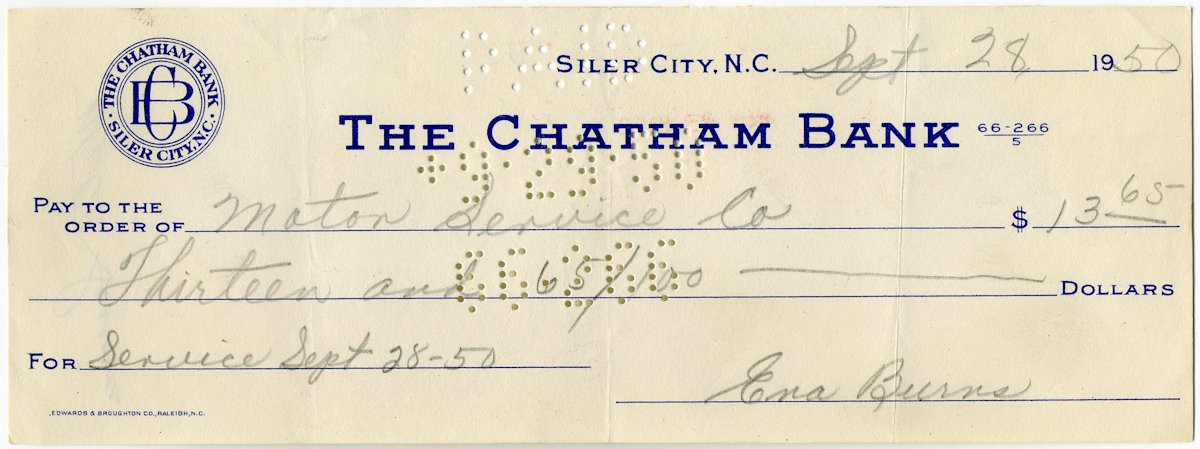 THE CHATHAM BANK
· SILER CITY, N.C. ·
CB
PAID
SILER CITY, N.C. Sept 28 1950
THE CHATHAM BANK 66-266/5
+9·29·50
PAY TO THE
ORDER OF Motor Service Co $ 13 65
66-266
Thirteen and 65/100 DOLLARS
FOR Service Sept 28-50
Eva Burns
EDWARDS & BROUGHTON CO., RALEIGH, N.C.